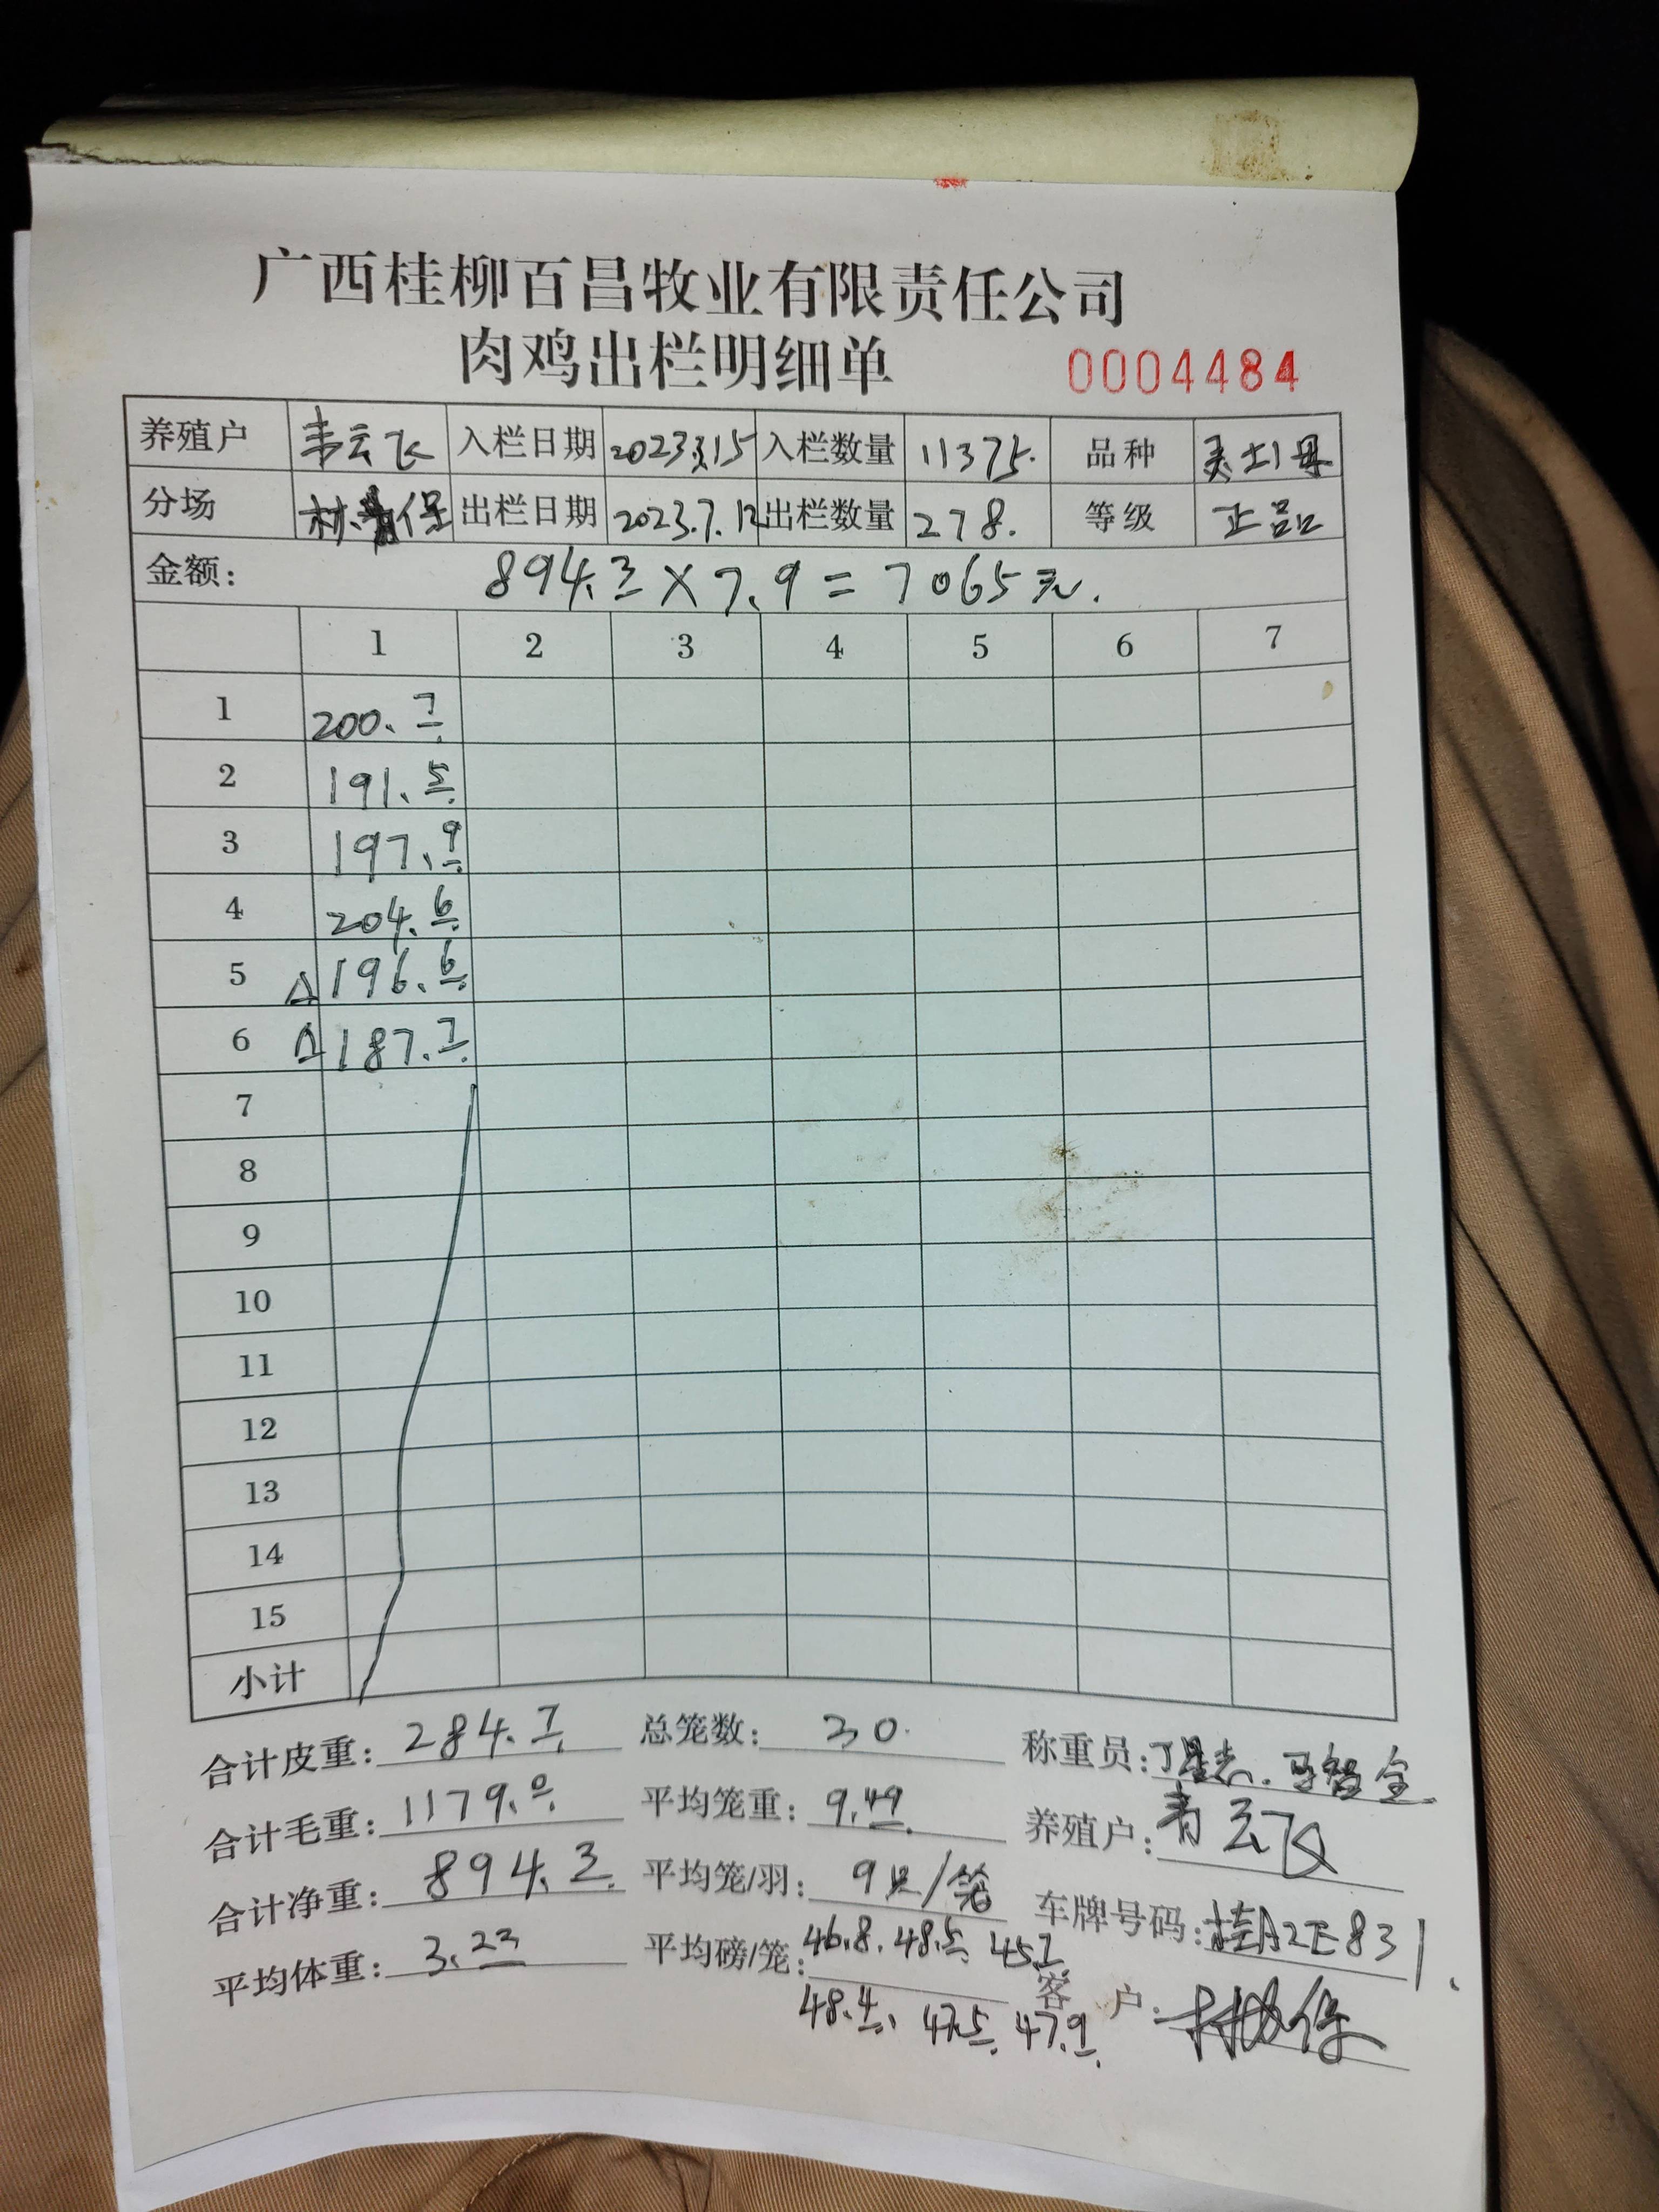 广西桂柳百昌牧业有限责任公司
肉鸡出栏明细单 0004484
养殖户 韦云飞 入栏日期 2023.3.15 入栏数量 11375. 品种
分场 出栏日期 2023.7.12 出栏数量 278. 等级 正品
金额: 894.3×7.9=7065元.
1 2 3 4 5 6 7
1 200.7
2 191.5
3 197.9
4 204.6
5 △196.6
6 △187.7
7
8
9
10
11
12
13
14
15
小计
合计皮重: 284.7 总笼数: 30. 称重员:
合计毛重: 1179.0 平均笼重: 9.49 养殖户: 韦云飞
合计净重: 894.3 平均笼/羽: 9只/笼 车牌号码: 桂A2E831.
平均体重: 3.23 平均磅/笼: 46.8. 48.5. 45.7.
48.4. 47.5. 47.9. 客户: